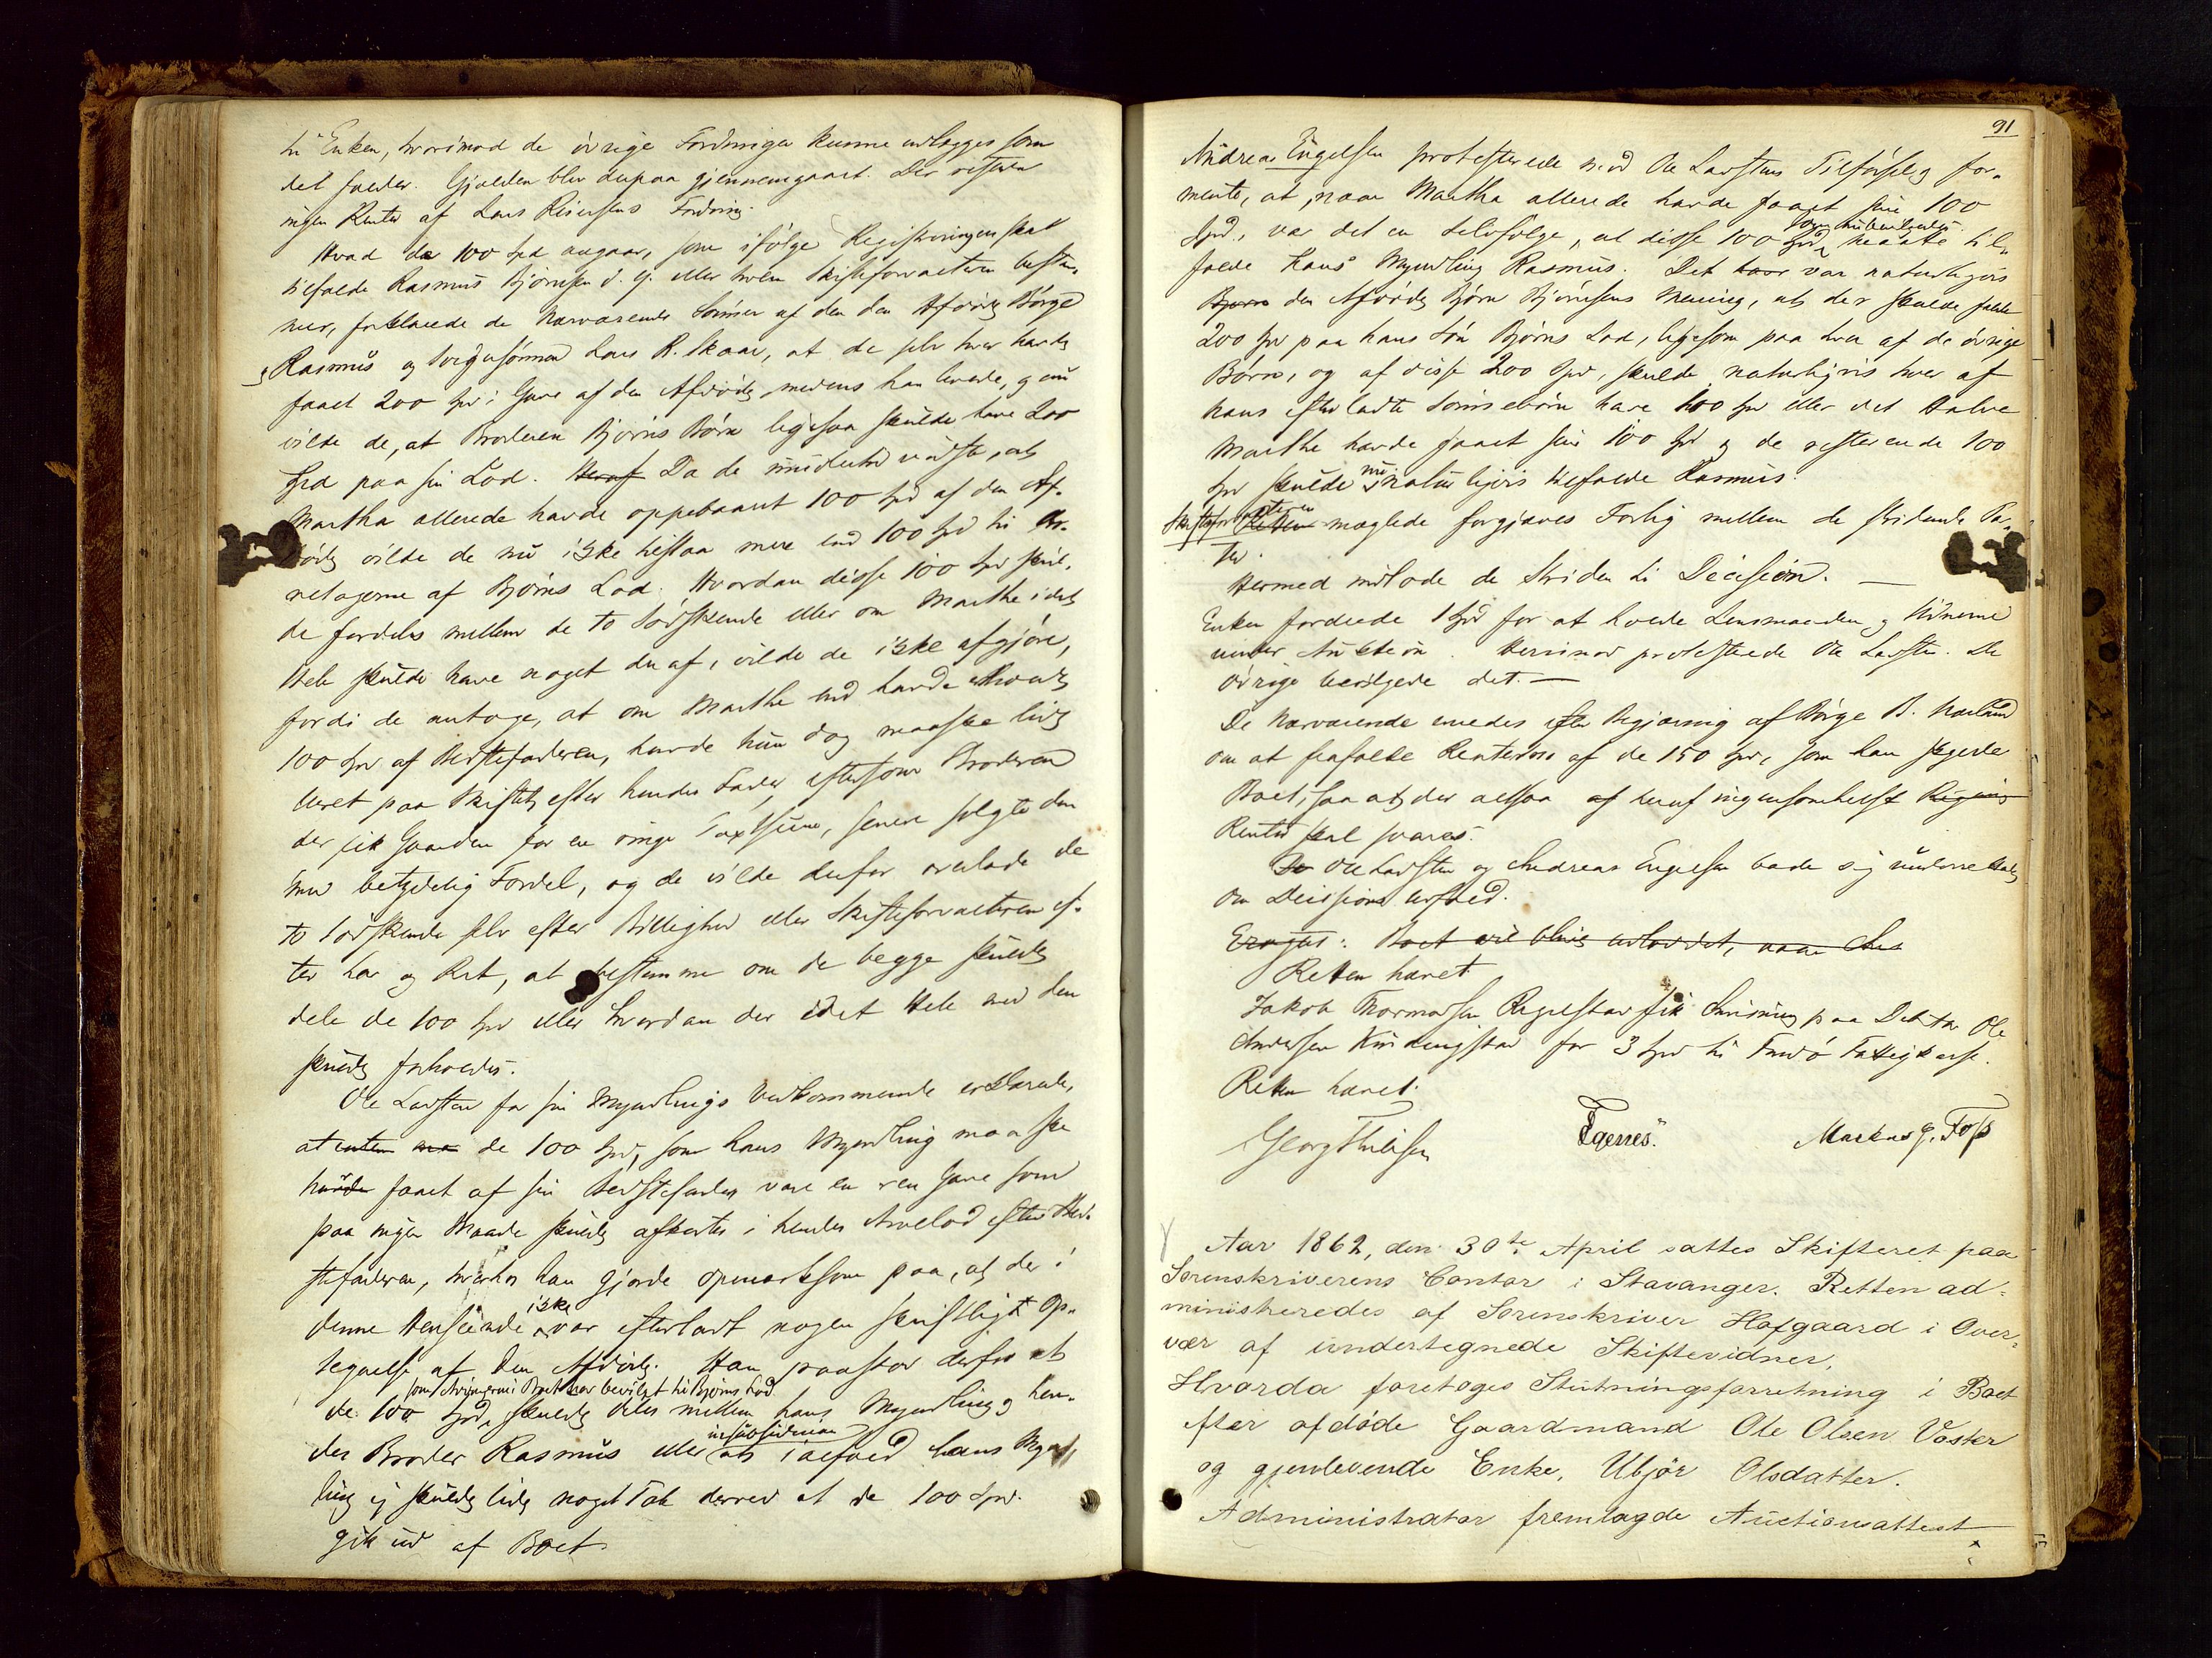 til Enken, hvorimod de övrige Fordringer kunne udlægges som
det falder. Gjælden blev derpaa gjennemgaaet. Der restere
ingen Renter af Lars Fordring.
Hvad de 100 Spd angaar, som ifölge Registreringen skal
tilfalde Rasmus Björnsen d. y. eller hvem Skifteforvalteren bestem,
mer, forklarede de nærværende Sönner af den den Afdöde Börge
Rasmus og Svigersönnen Lars R. Skaar, at de selv hver havde
faaet 200 Spd i Gave af den Afdöde, medens han levede, og nu
vilde de, at Broderen Björns Börn ligesaa skulde have 200
Spd paa sin Lod. Heraf Da de imidlertid vidste, at
Martha allerede havde oppebaaret 100 Spd af den Af-
döde vilde de nu ikke tilstaa mere end 100 Spd til Ar-
vetagerne af Björns Lod. Hvordan disse 100 Spd skul,
de fordeles mellem de to Södskende eller om Marthe i det
Hele skulde have noget deraf, vilde de ikke afgjöre,
fordi de antage, at om Marthe end havde erholdt
100 Spd af Bedstefaderen, havde hun dog maaske lidt
paa Skiftet efter hendes Fader, eftersom Broderen
der fik Gaarden for en ringe Taxtsum, senere solgte den
med betydelig Fordel, og de vilde derfor overlade de
to Södskende selv efter Billighed eller Skifteforvalteren ef-
ter Lov og Ret, at bestemme om de begge skulde
dele de 100 Spd eller hvordan der idet Hele med dem
skulde forholdes.
Ole Larsen for sin Myndlings Vedkommende erklærede,
at de 100 Spd, som hans Myndling maaske
havde faaet af sin Bedstefader var en ren Gave som
paa ingen Maade skulde afkortes i hendes Arvelod efter Bed-
stefaderen, hvorhos han gjorde opmærksom paa, at der i
denne Henseende ikke var efterladt nogen skriftligt Op-
tegnelse af den Afdöde. Han paastod derfor at
som Arvingerne i Boet har bevilget til Björns Lod
de 100 Spd, skulde deles mellem hans Myndling og hen-
des Broder Rasmus eller in subsidium at i alfald hans Mynd,
ling ej skulde lide noget Tab derved at de 100 Spd.
gik ud af Boet.
91
Andreas Engelsen protesterede mod Ole Larsens Tilförsel og for-
mente, at, naar Martha allerede havde faaet sine 100
Spd, var det en Selvfölge, at disse 100 Spd maatte til,
falde hans Myndling Rasmus. Det var naturligvis
Björn den Afdöde Björn Björnsens Mening, at der skulde falde
200 Spd paa hans Sön Björns Lod, ligesom paa hver af de övrige
Börn, og af disse 200 Spd, skulde naturligvis hver af
hans efterladte Sönnebörn have 100 Spd eller det Halve
Marthe havde faaet sine 100 Spd og de resterende 100
Spd skulde nu naturligvis tilfalde Rasmus.
Skifteforvalteren Retten mæglede forgjæves Forlig mellem de stridende Par-
ter.
Hermed indlode de Striden til Decision. —
Enken fordrede 1 Spd for at holde Lensmanden og Vidnerne
under Auction. Herimod protesterede Ole Larsen. De
övrige bevilgede det. —
De Nærværende enedes efter Begjæring af Börge B. Harland
om at frafalde Renterne af de 150 Spd, som han skylder
Boet, saa at der altsaa af heraf ingensomhelst
Renter skal svares.
Ole Larsen og Andreas Engelsen bade sig underrettet
om Decisions Afsked.
Boet vil blive udloddet, naar
Retten hævet
Jakob Thormodsen Regelstad fik Anvisning paa Debitor Ole
Andersen for 3 Spd til Findö Fattigkasse.
Retten hævet.
Georg Thilisen Egenes. Markus G. Foss
Aar 1862, den 30te April sattes Skifteret paa
Sorenskriverens Contor i Stavanger. Retten ad-
ministreredes af Sorenskriver Hofgaard i Over-
vær af undertegnede Skiftevidner,
Hvorda foretoges Slutningsforretning i Boet
efter afdöde Gaardmand Ole Olsen Voster
og gjenlevende Enke, Ubjör Olsdatter.
Administrator fremlagde Auctionsattest